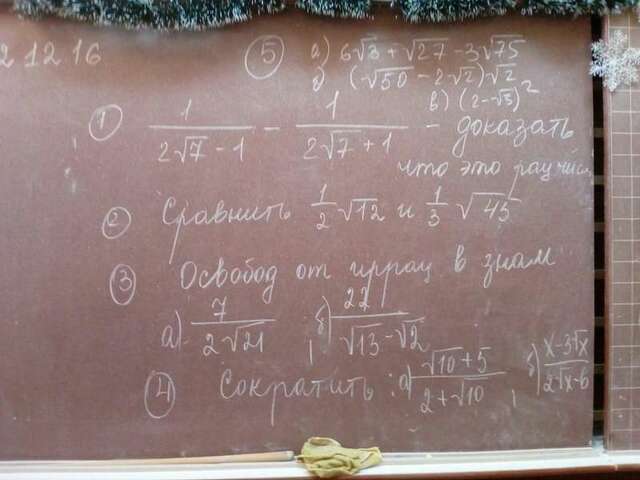 2 12 16
⑤ а) 6√3 + √27 - 3√75
б) (√50 - 2√2)·√2
в) (2-√3)²
① 1/(2√7 - 1) - 1/(2√7 + 1) - доказать
что это рац числ
② Сравнить 1/2 √12 и 1/3 √45
③ Освобод от иррац в знам
а) 7/(2√21) , б) 22/(√13 - √2)
④ Сократить : а) (√10 + 5)/(2 + √10) , б) (x - 3√x)/(2√x - 6)